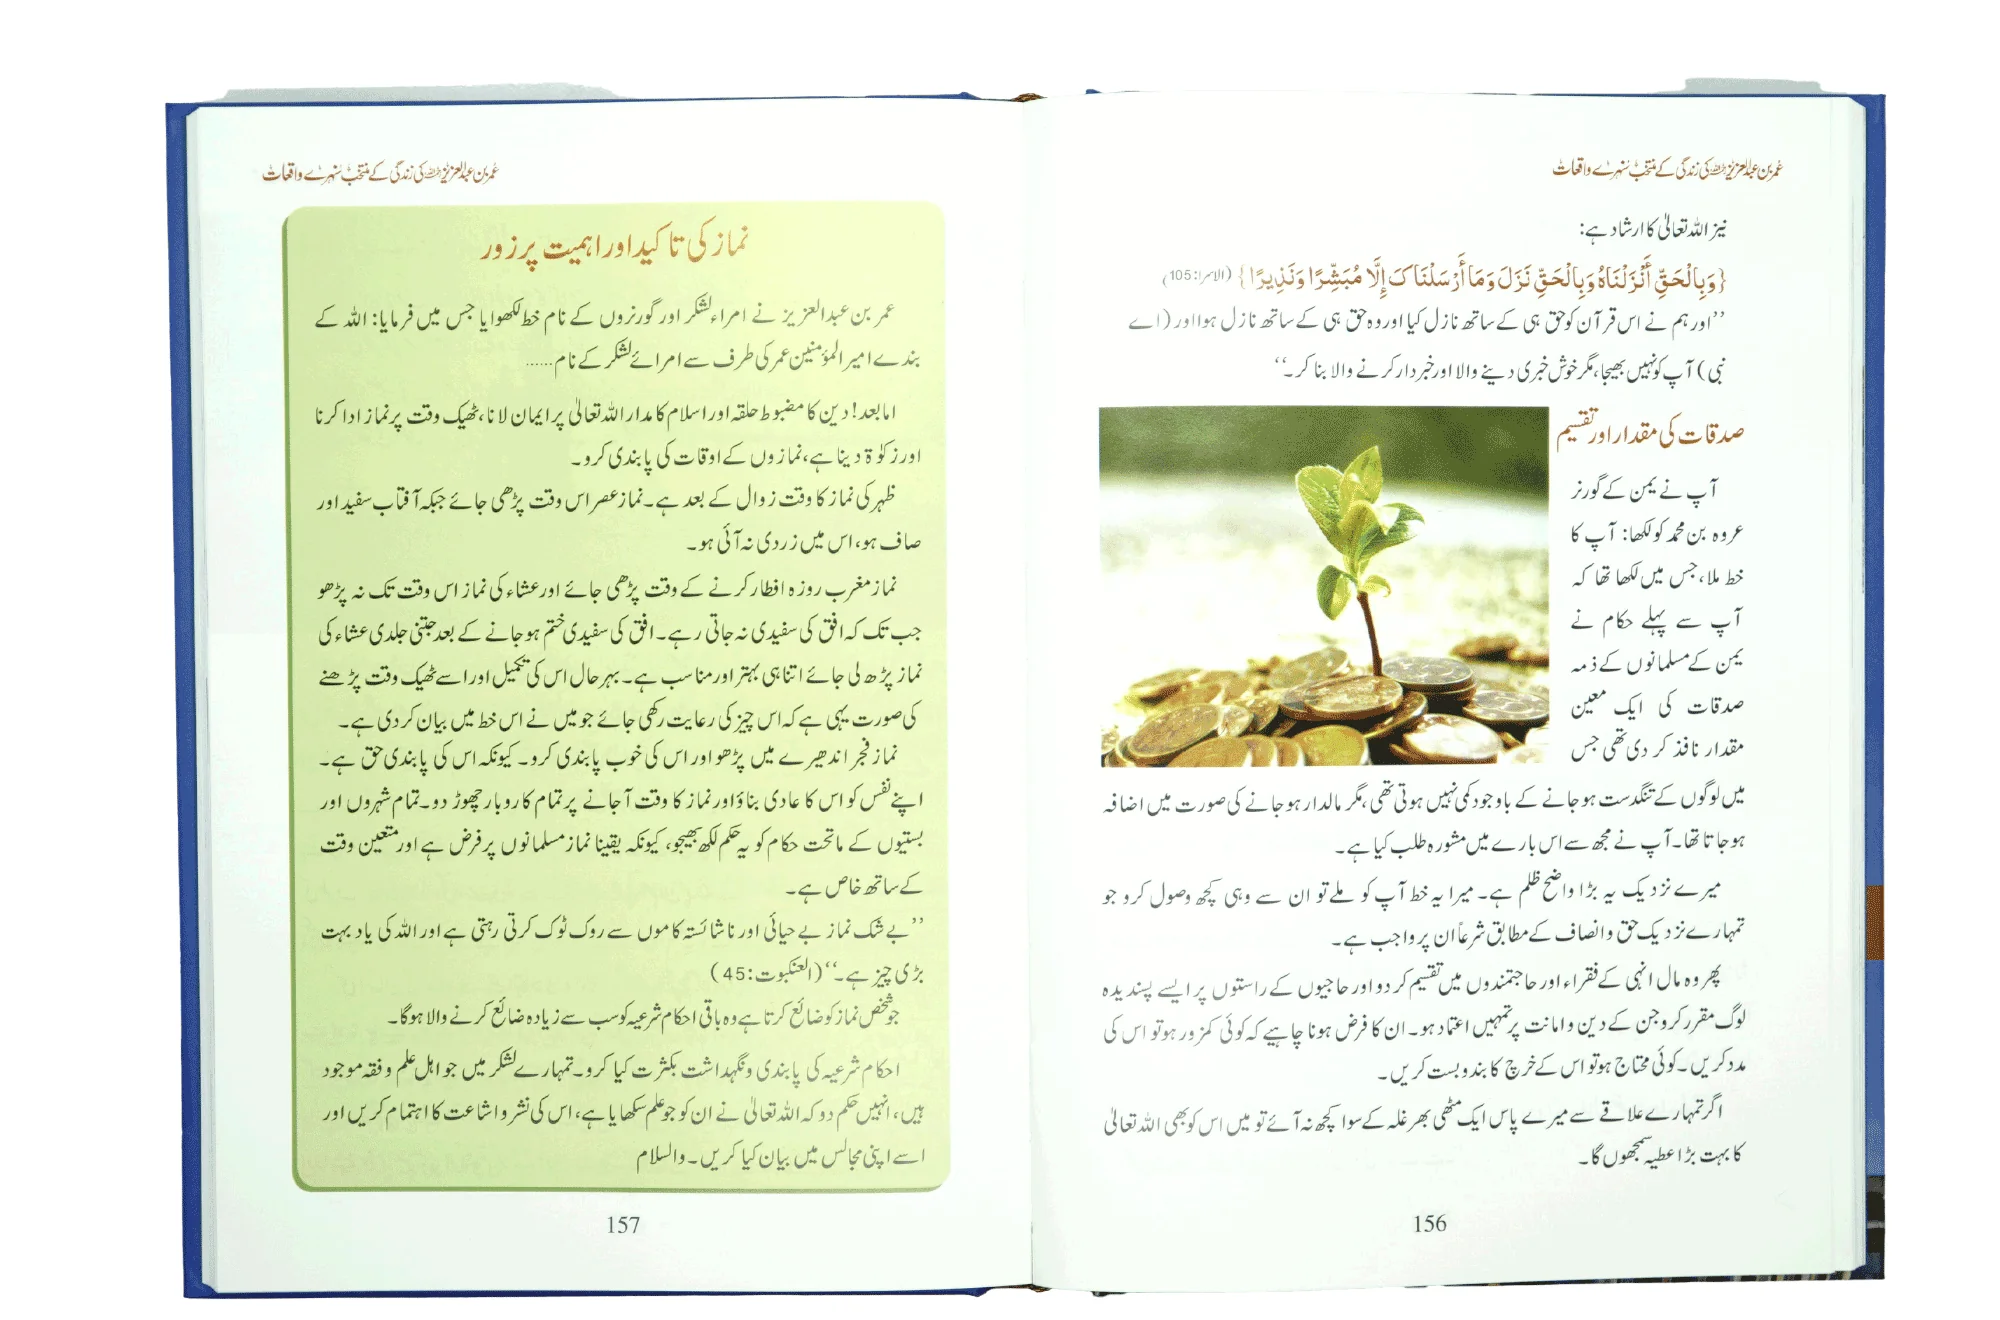 عمر بن عبدالعزیز رحمہ اللہ کی زندگی کے منتخب سنہرے واقعات
نیز اللہ تعالیٰ کا ارشاد ہے:
{وَبِالْحَقِّ أَنْزَلْنَاهُ وَبِالْحَقِّ نَزَلَ وَمَا أَرْسَلْنَاكَ إِلَّا مُبَشِّرًا وَنَذِيرًا} (الاسرا:105)
’’اور ہم نے اس قرآن کو حق ہی کے ساتھ نازل کیا اور وہ حق ہی کے ساتھ نازل ہوا اور (اے
نبی) آپ کو نہیں بھیجا، مگر خوش خبری دینے والا اور خبردار کرنے والا بنا کر۔‘‘
صدقات کی مقدار اور تقسیم
آپ نے یمن کے گورنر
عروہ بن محمد کو لکھا: آپ کا
خط ملا، جس میں لکھا تھا کہ
آپ سے پہلے حکام نے
یمن کے مسلمانوں کے ذمہ
صدقات کی ایک معین
مقدار نافذ کر دی تھی جس
میں لوگوں کے تنگدست ہو جانے کے باوجود کمی نہیں ہوتی تھی، مگر مالدار ہو جانے کی صورت میں اضافہ
ہو جاتا تھا۔ آپ نے مجھ سے اس بارے میں مشورہ طلب کیا ہے۔
میرے نزدیک یہ بڑا واضح ظلم ہے۔ میرا یہ خط آپ کو ملے تو ان سے وہی کچھ وصول کرو جو
تمہارے نزدیک حق و انصاف کے مطابق شرعاً ان پر واجب ہے۔
پھر وہ مال انہی کے فقراء اور حاجتمندوں میں تقسیم کر دو اور حاجیوں کے راستوں پر ایسے پسندیدہ
لوگ مقرر کرو جن کے دین و امانت پر تمہیں اعتماد ہو۔ ان کا فرض ہونا چاہیے کہ کوئی کمزور ہو تو اس کی
مدد کریں۔ کوئی محتاج ہو تو اس کے خرچ کا بندوبست کریں۔
اگر تمہارے علاقے سے میرے پاس ایک مٹھی بھر غلہ کے سوا کچھ نہ آئے تو میں اس کو بھی اللہ تعالیٰ
کا بہت بڑا عطیہ سمجھوں گا۔
156
عمر بن عبدالعزیز رحمہ اللہ کی زندگی کے منتخب سنہرے واقعات
نماز کی تاکید اور اہمیت پر زور
عمر بن عبدالعزیز نے امراء لشکر اور گورنروں کے نام خط لکھوایا جس میں فرمایا: اللہ کے
بندے امیر المؤمنین عمر کی طرف سے امرائے لشکر کے نام……
اما بعد! دین کا مضبوط حلقہ اور اسلام کا مدار اللہ تعالیٰ پر ایمان لانا، ٹھیک وقت پر نماز ادا کرنا
اور زکوٰۃ دینا ہے، نمازوں کے اوقات کی پابندی کرو۔
ظہر کی نماز کا وقت زوال کے بعد ہے۔ نماز عصر اس وقت پڑھی جائے جبکہ آفتاب سفید اور
صاف ہو، اس میں زردی نہ آئی ہو۔
نماز مغرب روزہ افطار کرنے کے وقت پڑھی جائے اور عشاء کی نماز اس وقت تک نہ پڑھو
جب تک کہ افق کی سفیدی نہ جاتی رہے۔ افق کی سفیدی ختم ہو جانے کے بعد جتنی جلدی عشاء کی
نماز پڑھ لی جائے اتنا ہی بہتر اور مناسب ہے۔ بہر حال اس کی تکمیل اور اسے ٹھیک وقت پڑھنے
کی صورت یہی ہے کہ اس چیز کی رعایت رکھی جائے جو میں نے اس خط میں بیان کر دی ہے۔
نماز فجر اندھیرے میں پڑھو اور اس کی خوب پابندی کرو۔ کیونکہ اس کی پابندی حق ہے۔
اپنے نفس کو اس کا عادی بناؤ اور نماز کا وقت آجانے پر تمام کاروبار چھوڑ دو۔ تمام شہروں اور
بستیوں کے ماتحت حکام کو یہ حکم لکھ بھیجو، کیونکہ یقینا نماز مسلمانوں پر فرض ہے اور متعین وقت
کے ساتھ خاص ہے۔
’’بے شک نماز بے حیائی اور ناشائستہ کاموں سے روک ٹوک کرتی رہتی ہے اور اللہ کی یاد بہت
بڑی چیز ہے۔‘‘ (العنکبوت:45)
جو شخص نماز کو ضائع کرتا ہے وہ باقی احکام شرعیہ کو سب سے زیادہ ضائع کرنے والا ہوگا۔
احکام شرعیہ کی پابندی و نگہداشت بکثرت کیا کرو۔ تمہارے لشکر میں جو اہل علم و فقہ موجود
ہیں، انہیں حکم دو کہ اللہ تعالیٰ نے ان کو جو علم سکھایا ہے، اس کی نشر و اشاعت کا اہتمام کریں اور
اسے اپنی مجالس میں بیان کیا کریں۔ والسلام
157